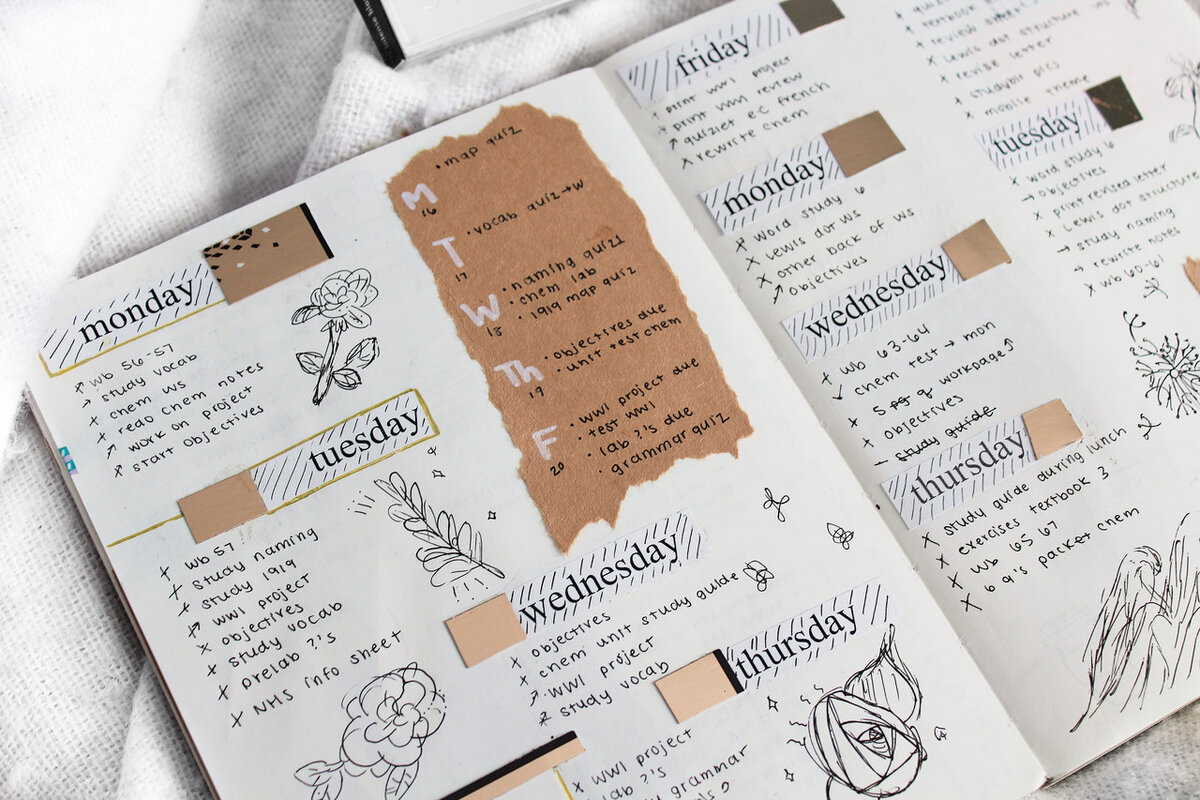 intense bla
monday
↗ wb 56-57
→ study vocab
x chem ws
x redo chem notes
↗ work on project
↗ start objectives
tuesday
x wb 57
x study naming
x study 1919
↗ WWI project
x objectives
x study vocab
x prelab ?'s
x NHS info sheet
M
16
• map quiz
T
17
• vocab quiz → W
W
18
• naming quiz 1
• chem lab
• 1919 map quiz
Th
19
• objectives due
• unit test chem
F
20
• WWI project due
• test WWI
• lab ?'s due
• grammar quiz
wednesday
x objectives
x chem unit study guide
↗ WWI project
x study vocab
thursday
x WWI project
lab ?'s
grammar
friday
x print WWI project
+ print WWI review
↗ quizlet e.c french
x rewrite chem
monday
x word study 6
x Lewis dot ws
x other back of ws
↗ objectives
wednesday
x wb 63-64
↓ chem test → mon
5 pg q workpage
x objectives
→ study guide
thursday
x study guide during lunch
x exercises textbook 3
x wb 65 67
x 6 q's packet chem
textbook
+ review
+ Lewis dot structure ws
+ revise letter
+ studyblr pics
x mobile meme
tuesday
x word study 6
→ objectives
x print revised letter
x Lewis dot structure
→ study naming
→ rewrite notes
x wb 60-61